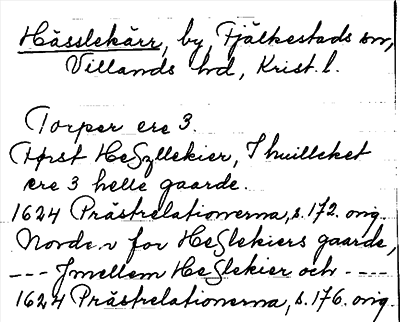 Hässlekärr, by, Fjälkestads sn,
Villands hd, Krist. l.
Torper ere 3.
Først Heßllekier, I huilleket
ere 3 helle gaarde.
1624 Prästrelationerna, s. 172. orig.
Norden for Heßlekiers gaarde,
--- Jmellem Heßlekier och ---
1624 Prästrelationerna, s. 176. orig.